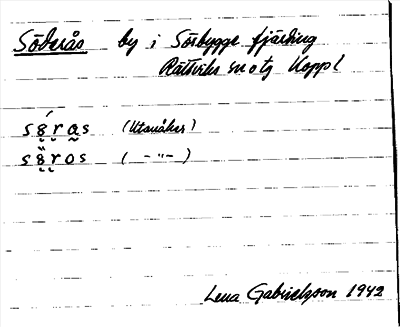 Söderås by i Sörbygge fjärding
Rättviks sn o tg Koppl
söras (Utanåker)
söros ( -"- )
Lena Gabrielsson 1942